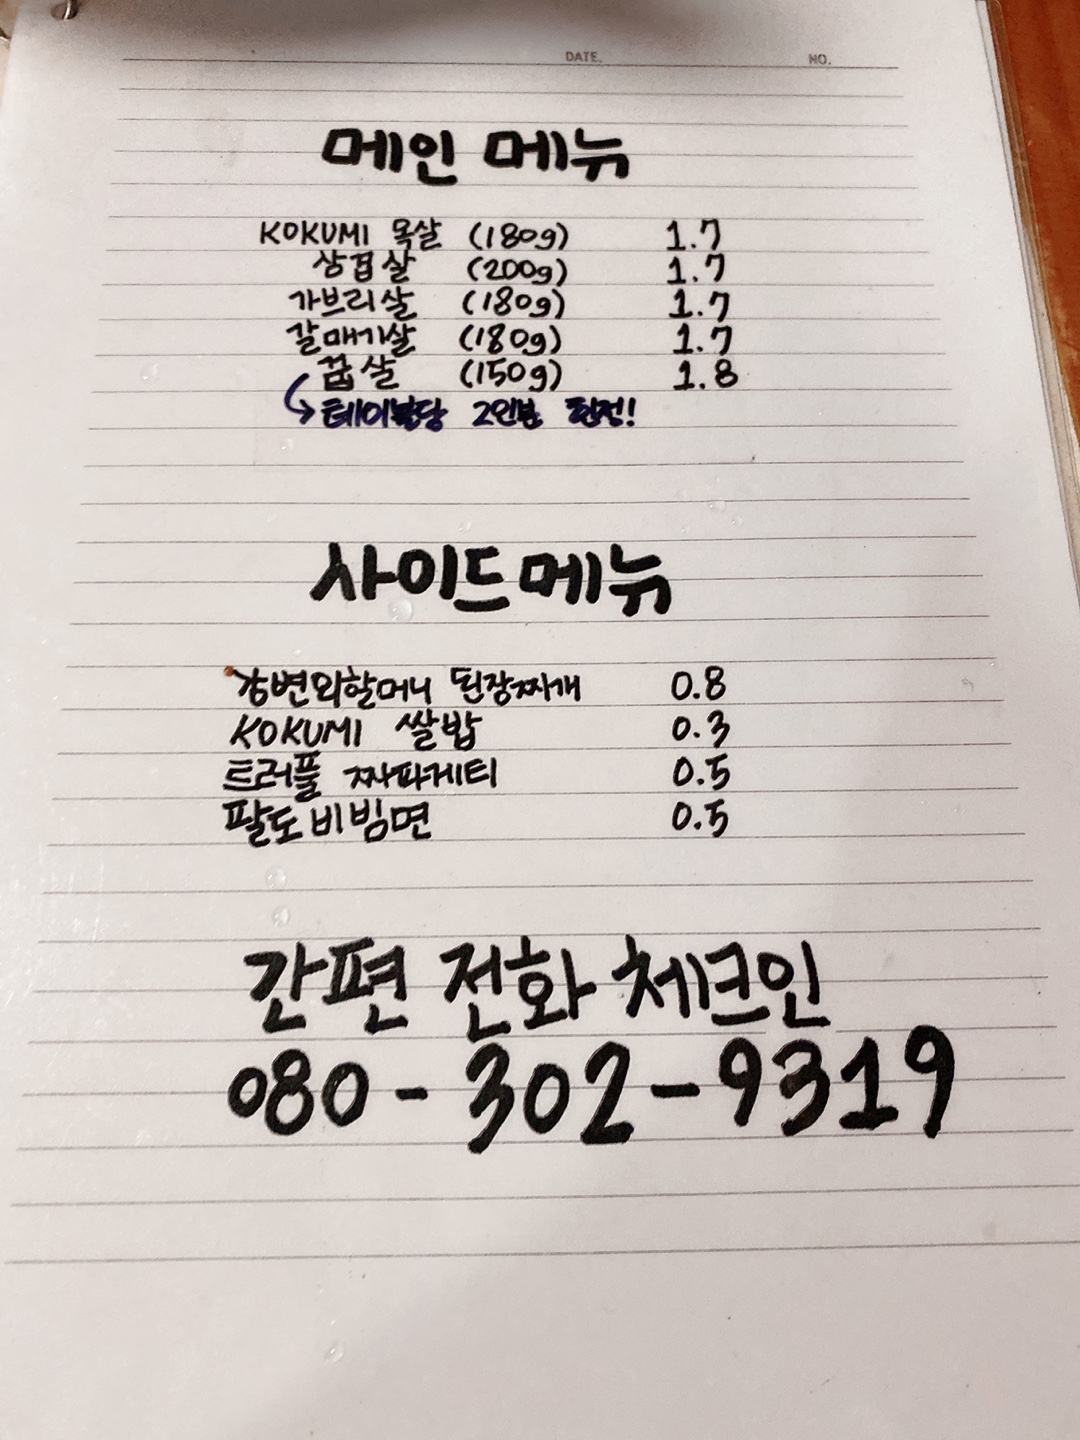 DATE. NO.
메인 메뉴
KOKUMI 목살 (180g) 1.7
삼겹살 (200g) 1.7
가브리살 (180g) 1.7
갈매기살 (180g) 1.7
꿉살 (150g) 1.8
테이블당 2인분 한정!
사이드 메뉴
강변외할머니 된장찌개 0.8
KOKUMI 쌀밥 0.3
트러플 짜파게티 0.5
팔도 비빔면 0.5
간편 전화 체크인
080-302-9319